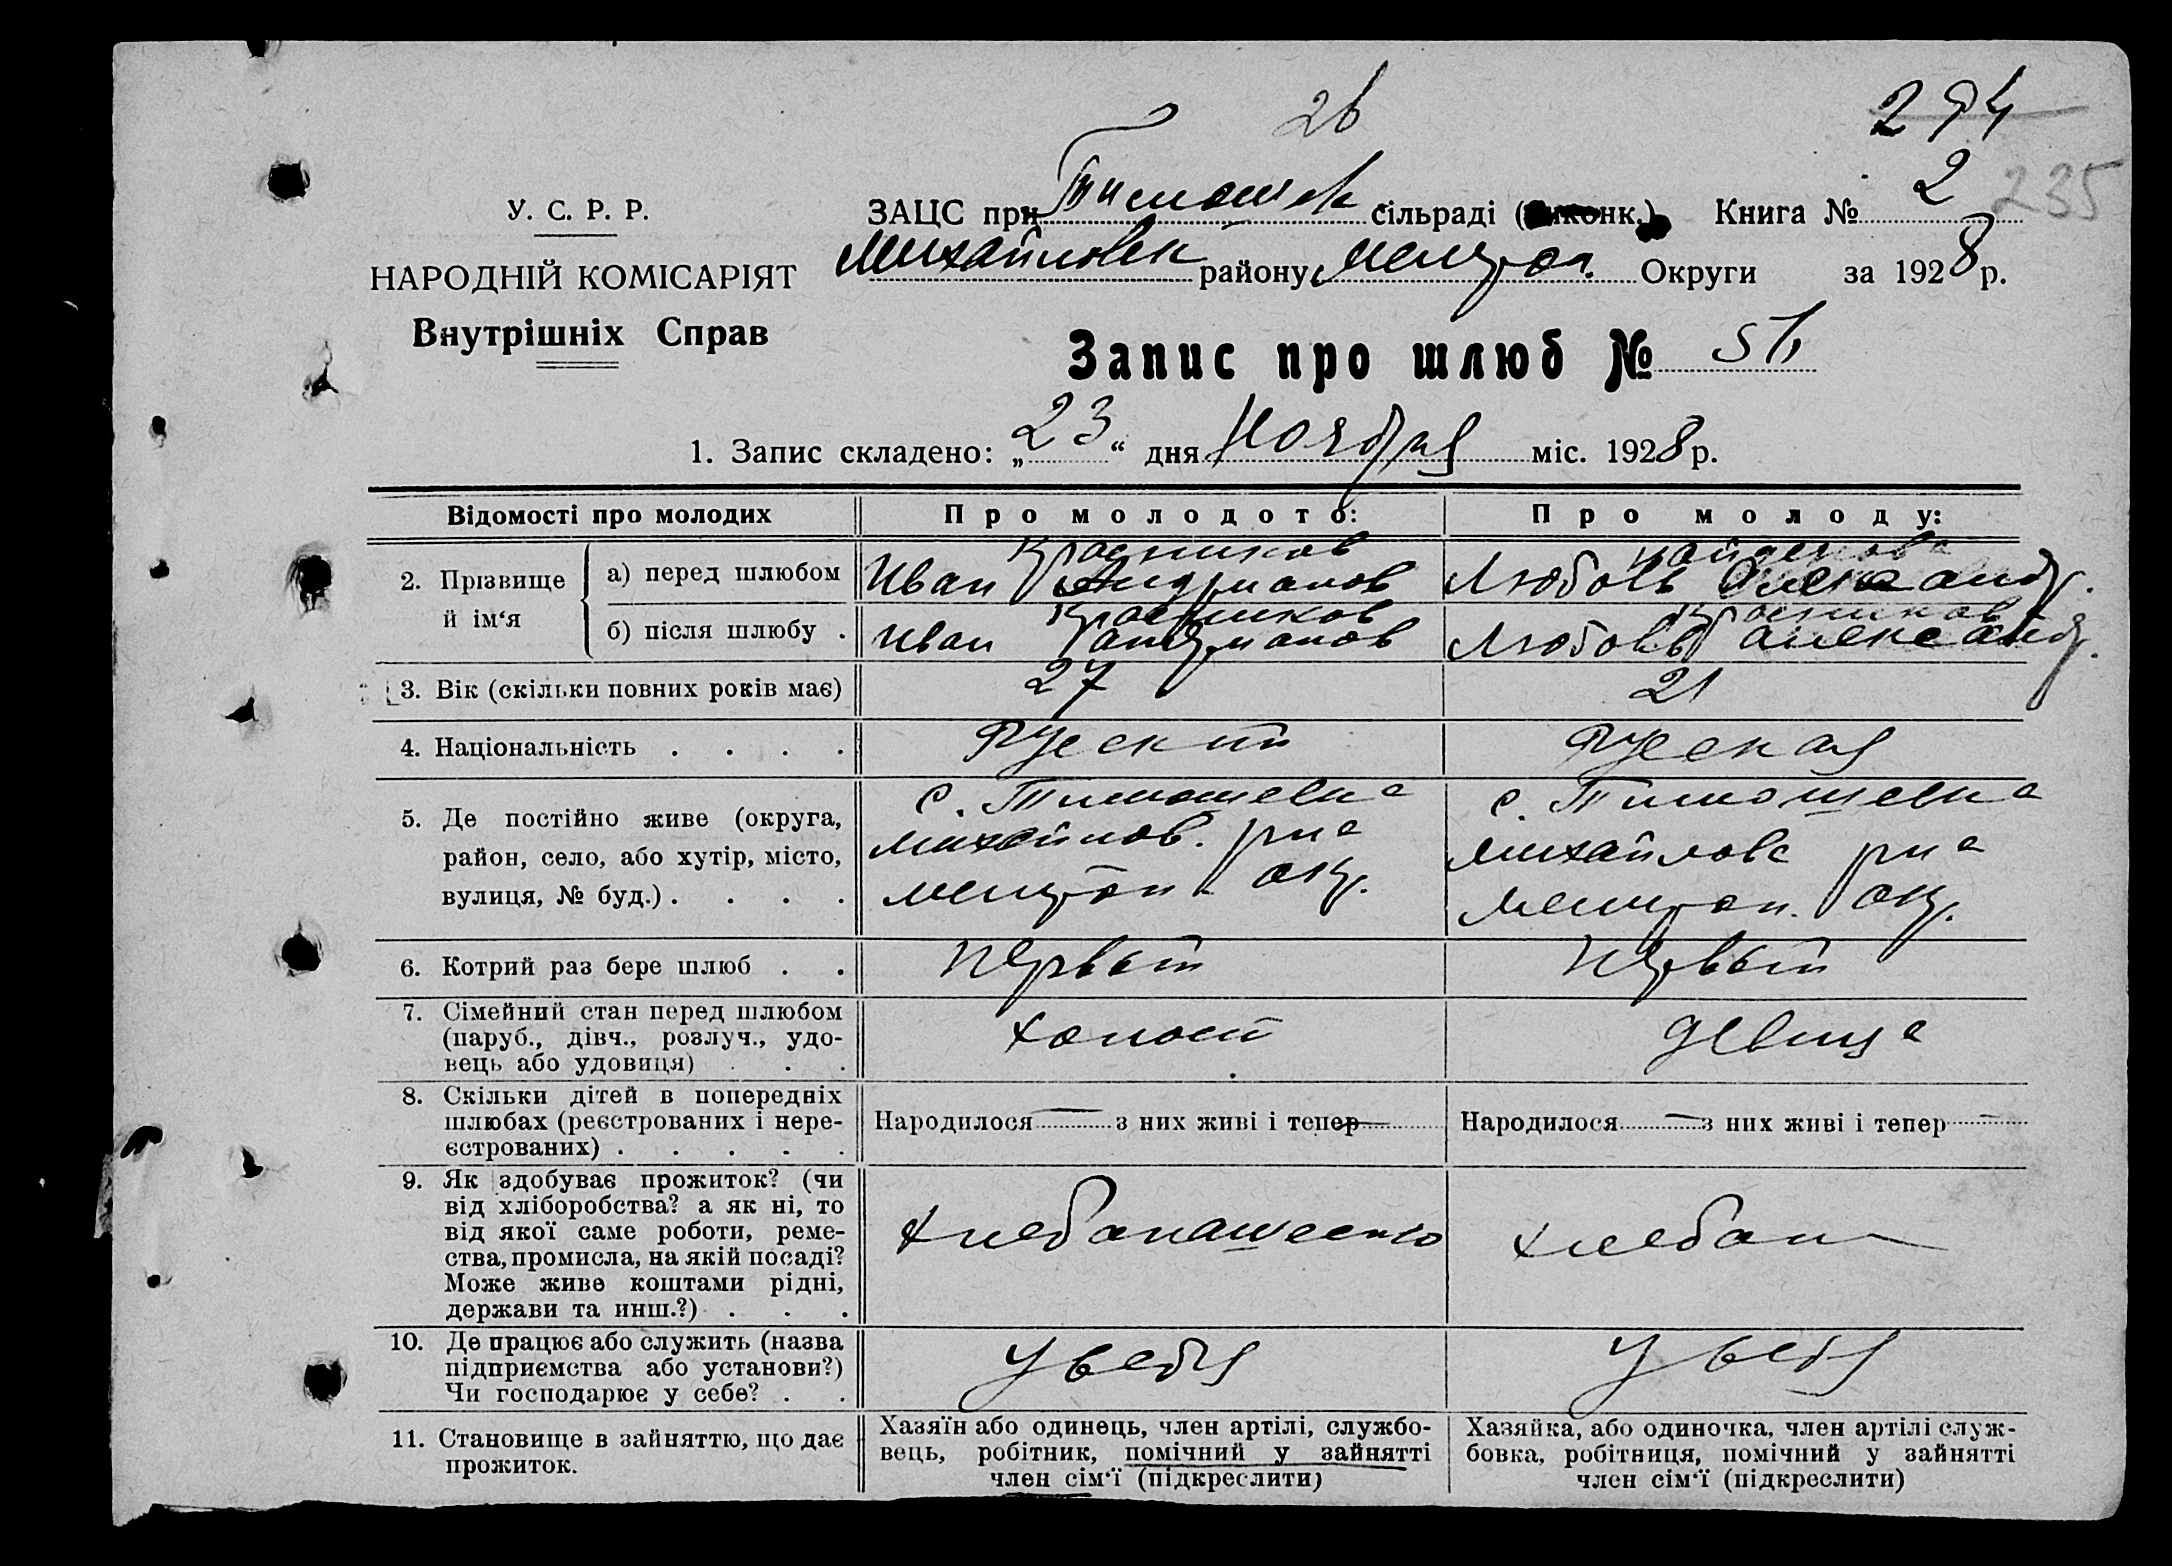 26
274
235
У. С. Р. Р.
НАРОДНІЙ КОМІСАРІЯТ
Внутрішніх Справ
ЗАЦС при Тимошев сільраді (Виконк.) Книга № 2
Михайловск району Мелитоп. Округи за 1928 р.
Запис про шлюб №
1. Запис складено: „23“ дня Ноября міс. 1928 р.
Відомості про молодих
Про молодого:
Про молоду:
2. Прізвище й ім‘я
а) перед шлюбом
Иван
Любовь Александр.
б) після шлюбу .
Иван
Любовь Александр.
3. Вік (скільки повних років має)
27
21
4. Національність . . . .
Руский
Руская
5. Де постійно живе (округа,
район, село, або хутір, місто,
вулиця, № буд.) . . . .
с. Тимошевка
михайлов. рна
мелитоп. окр.
с. Тимошевка
михайловс рна
Мелитоп. окр.
6. Котрий раз бере шлюб . .
первый
первый
7. Сімейний стан перед шлюбом
(паруб., дівч., розлуч., удо-
вець або удовиця) . . .
холост
девица
8. Скільки дітей в попередніх
шлюбах (реєстрованих і нере-
єстрованих) . . . . .
Народилося — з них живі і тепер —
Народилося — з них живі і тепер —
9. Як здобуває прожиток? (чи
від хліборобства? а як ні, то
від якої саме роботи, реме-
ства, промисла, на якій посаді?
Може живе коштами рідні,
держави та инш.?) . . .
хлебопашество
хлебоп
10. Де працює або служить (назва
підприємства або установи?)
Чи господарює у себе? . .
У себя
У себя
11. Становище в зайняттю, що дає
прожиток.
Хазяїн або одинець, член артілі, службо-
вець, робітник, помічний у зайнятті
член сім‘ї (підкреслити)
Хазяйка, або одиночка, член артілі служ-
бовка, робітниця, помічний у зайнятті
член сім‘ї (підкреслити)